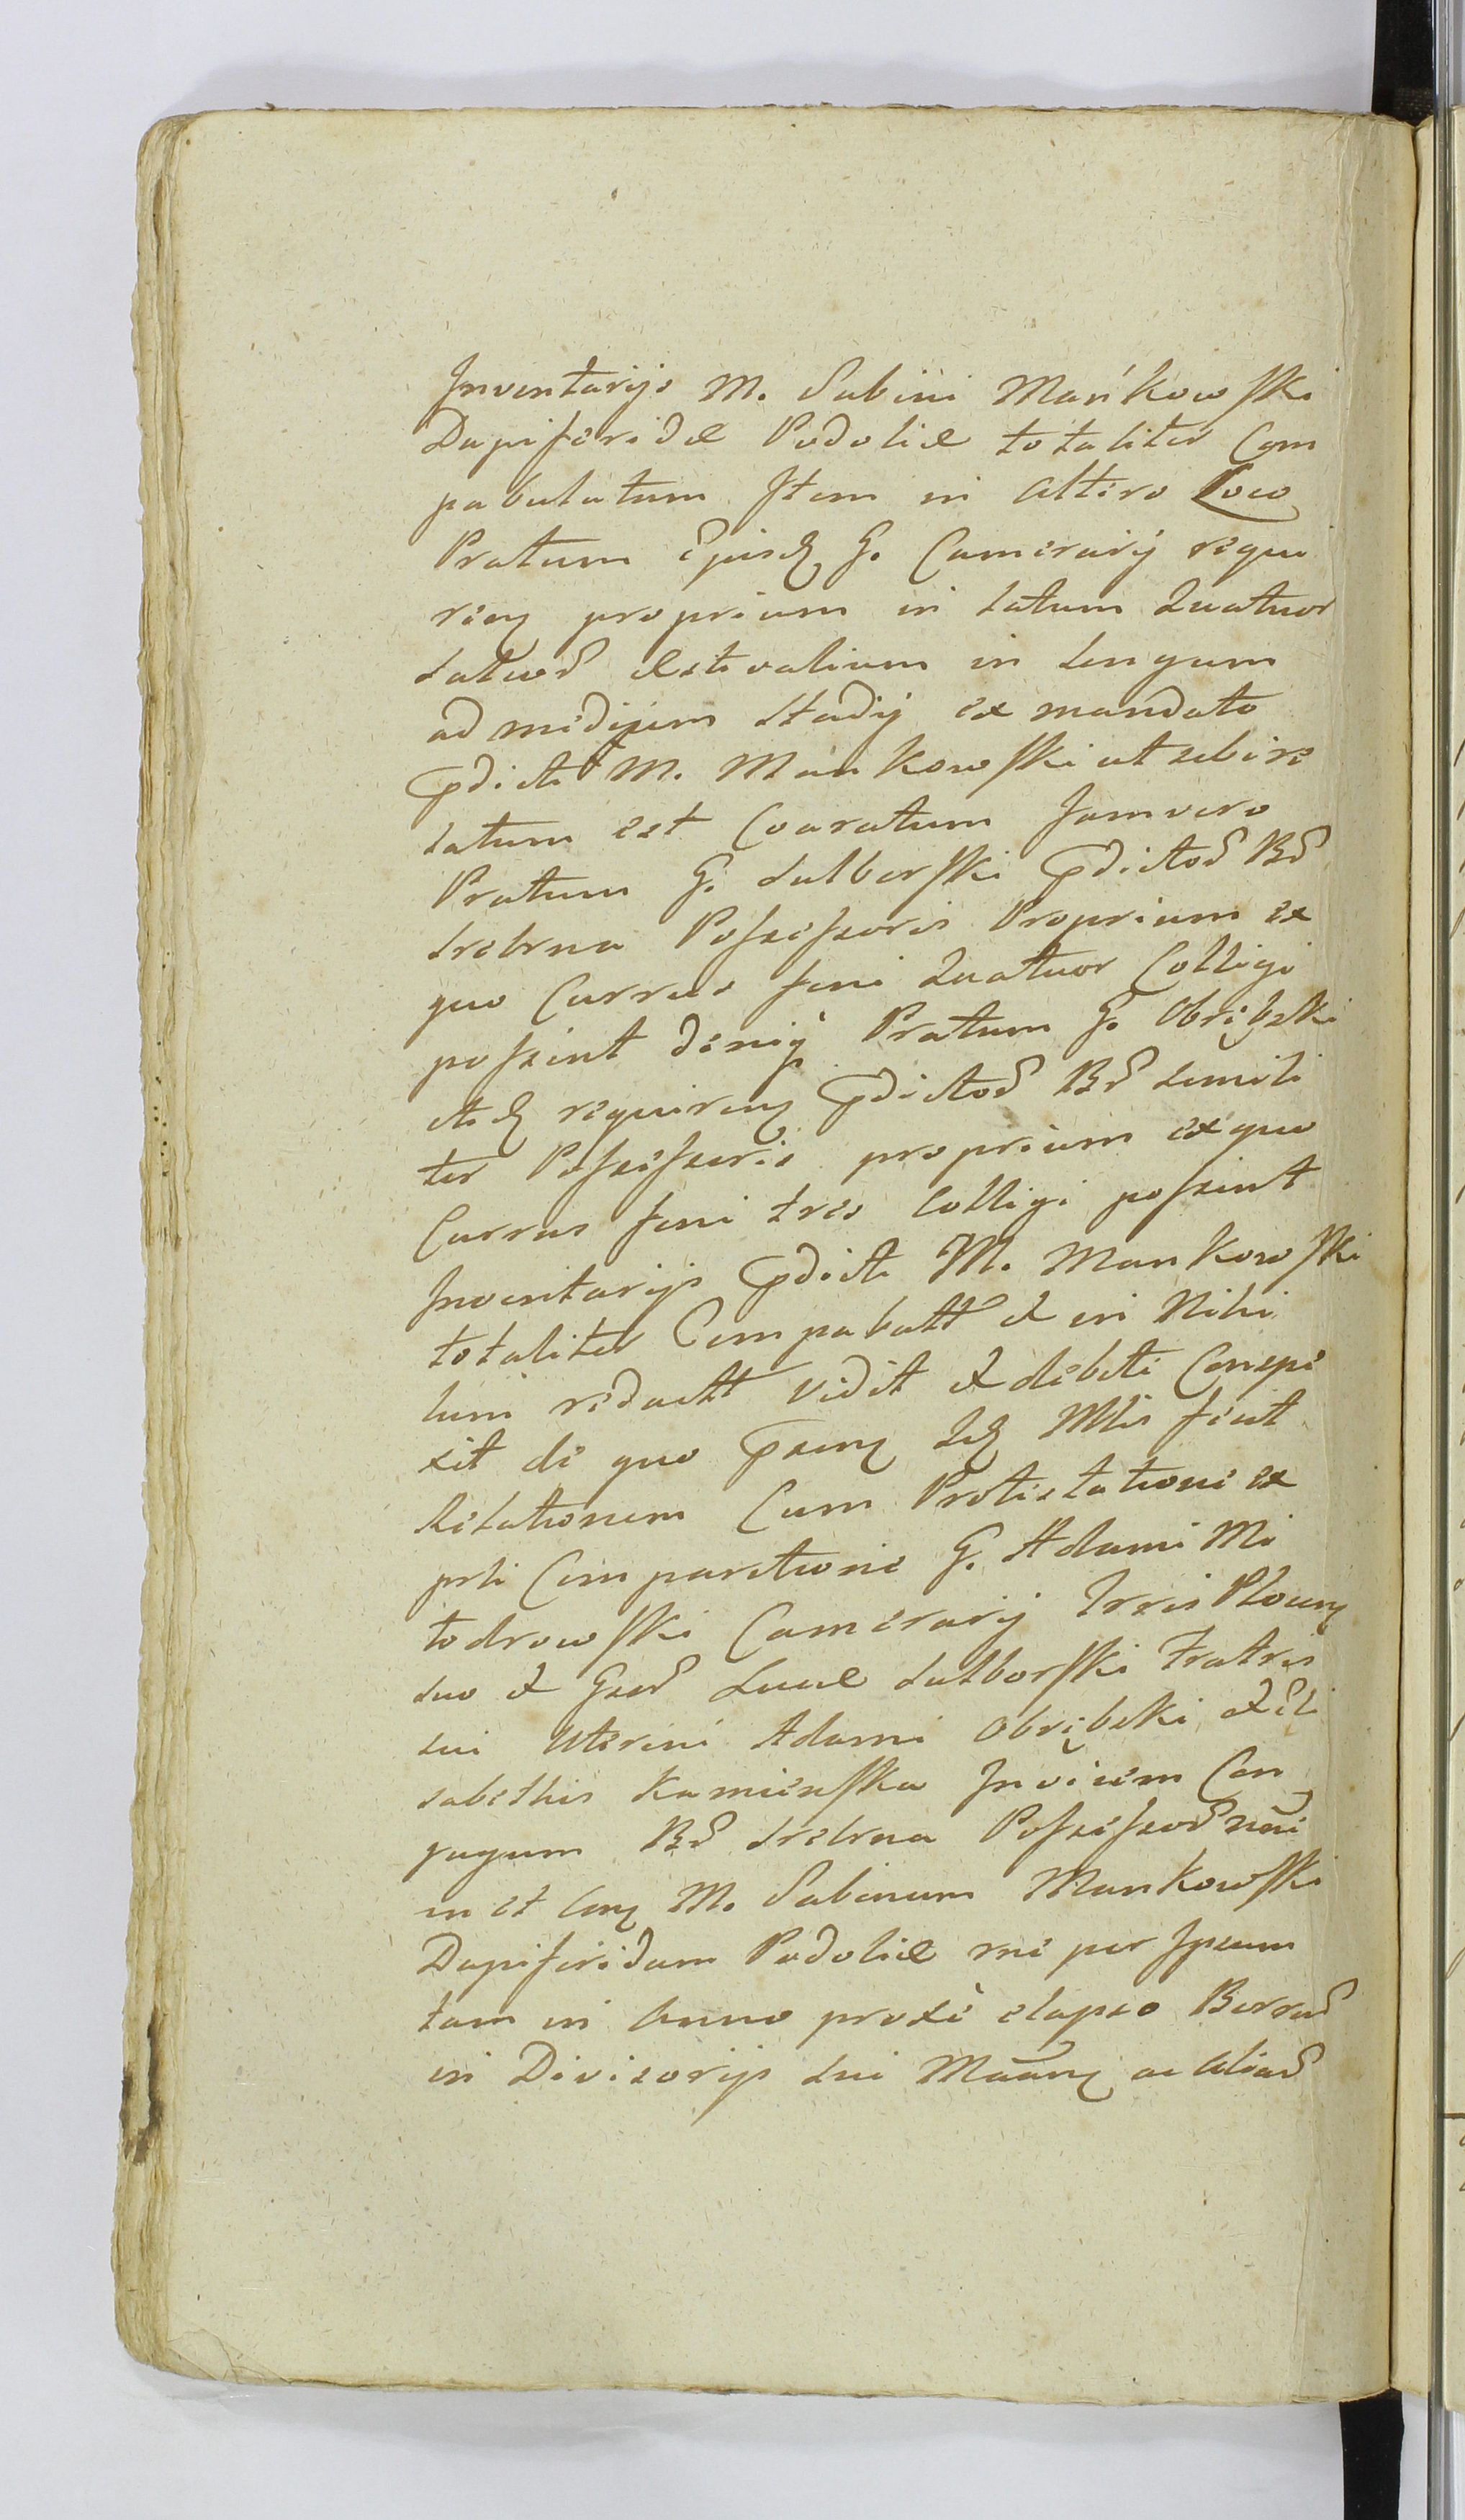 Inventarijs M. Sabini Mańkowski
Dapiferidæ Podoliæ totaliter Com
pabulatum Item in altero Loco
Pratum Ejusd G. Camerarij requi
ren proprium in latum Quatuor
satuum æstivalium in longum
ad medium stadij ex mandato
prædicti M. Mankowski ut sebi re
latum est Coaratum Jamvero
Pratum G. Sulborski prædictor Br
Srebrna Possessoris Proprium ex
quo Currus feni Quatuor Colligi
possint deniq Pratum G. Obrębski
itid requiren prædictor Br simili
ter Possessoris proprium ex quo
Currus feni tres Colligi possint
Inventarijs prædicti M. Mankowski
totaliter Compabutt et in Nihi
lum redactt vidit et debite Conspe
xit de quo præsen Idq Mlis fecit
Relationem Cum Protestatione ex
prti Comparitione G. Adami Mi
todrowski Camerarij Trris Plocen
suo et Gser Lucæ Sulborski Fratris
sui Uterini Adami Obrębski et Eli
sabethis Kamieńska Invicem Con
jugum Br Srebrna Possessor nni
in et con M. Sabinum Mankowski
Dapiferidam Podoliæ rne per Ipsum
tam in Anno proxe elapso Borrar
in Divisorijs sui Maan ac aliar